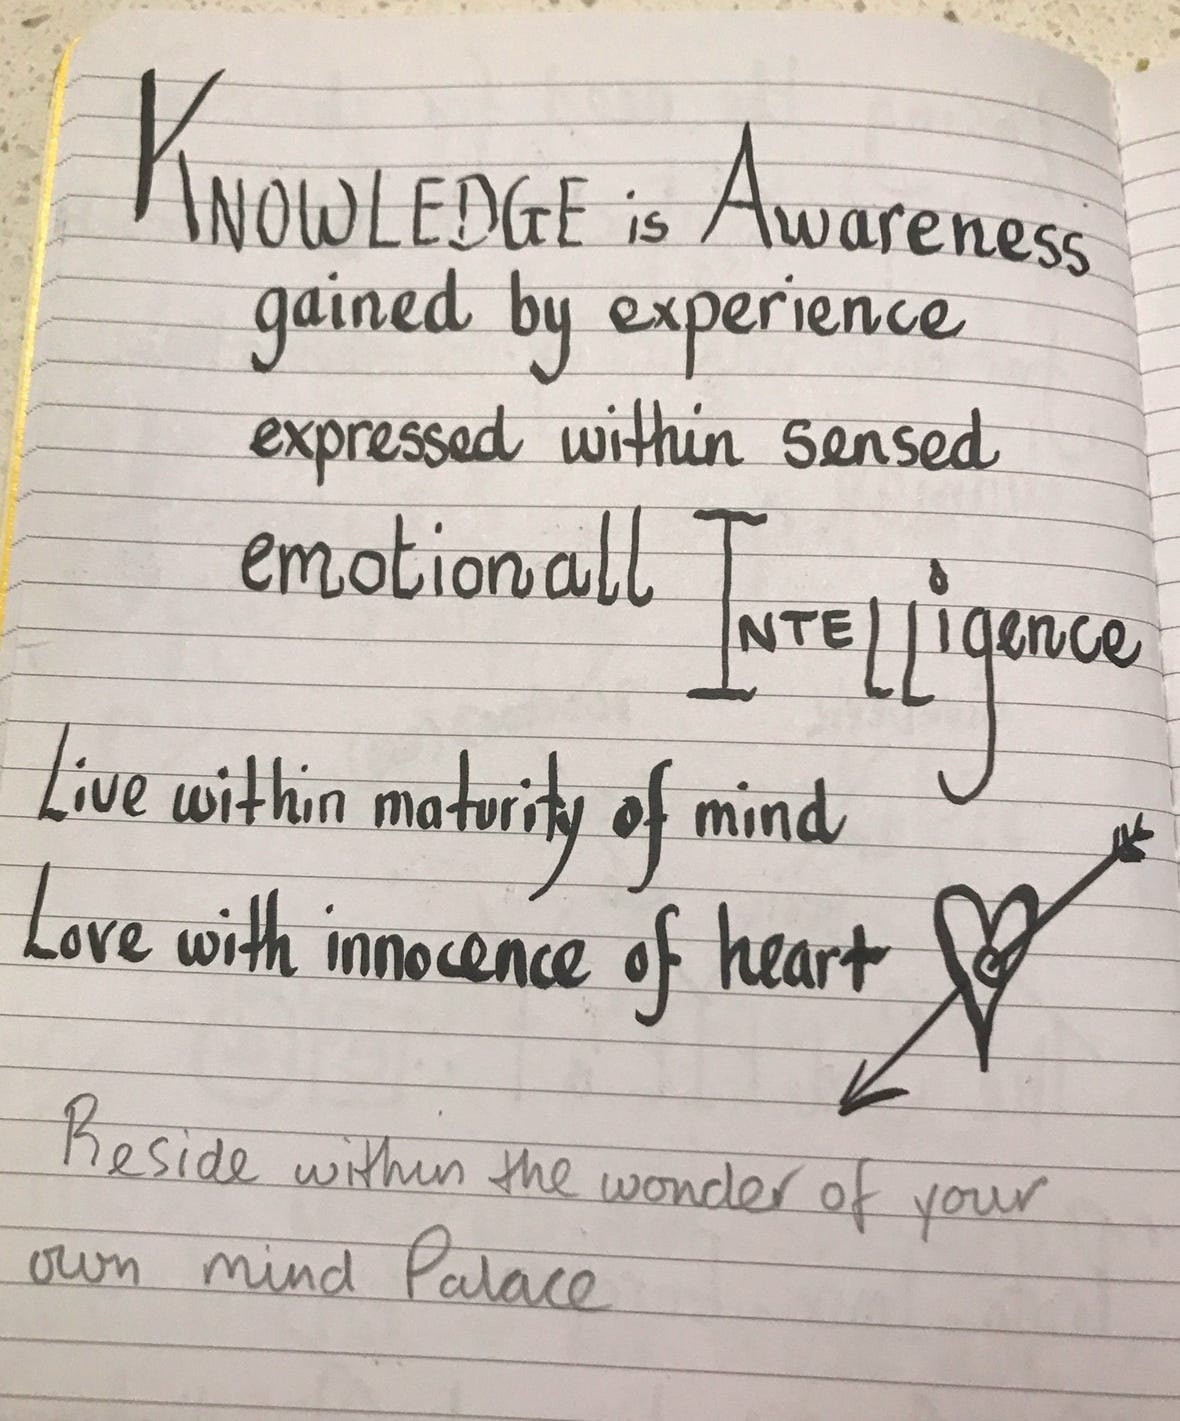 KNOWLEDGE is Awareness
gained by experience
expressed within sensed
emotionall INTElligence
Live within maturity of mind
Love with innocence of heart
Reside within the wonder of your
own mind Palace